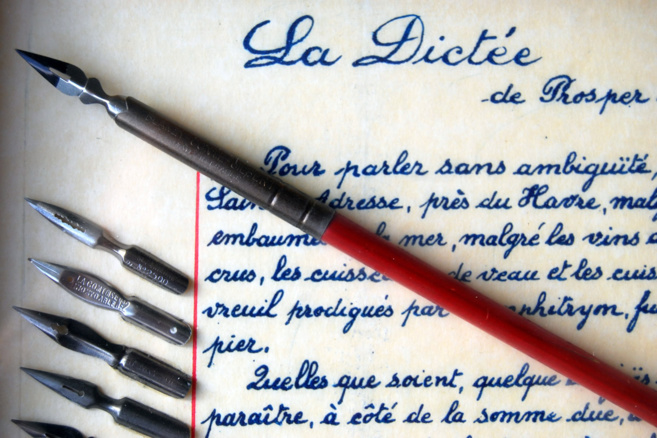 La Dictée
de Prosper
Pour parler sans ambiguïté,
Adresse, près du Havre,
mer, malgré les vins
crus, les de veau et les
vreuil prodigués par
pier.
Quelles que soient, quelque
paraître, à côté de la somme due,